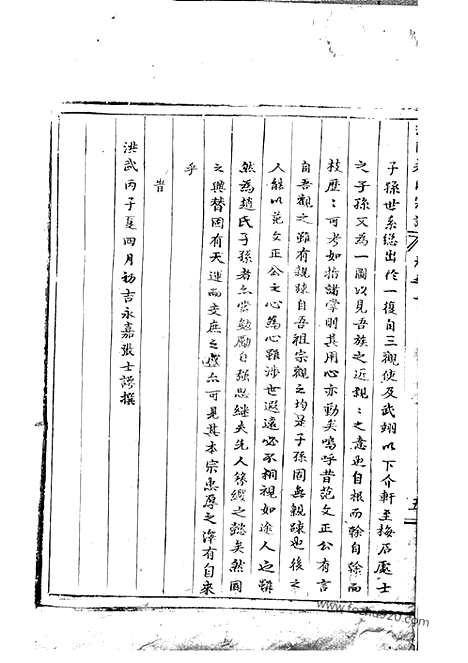 子孫世系總出於一復自三觀使及武翊以下介軒至梅居處士
之子孫又為一圖以見吾族之近親：之意也自根而榦自榦而
枝歷：可考如指諸掌則其用心亦勤矣嗚呼昔范文正公有言
自吾觀之雖有親疎自吾祖宗觀之均是子孫固無親疎也後之
人能以范文正公之心為心雖涉世遐遠必不相視如途人也雖
然為趙氏子孫者亦當勉勵自強思継夫先人養綴之懿矣然固
之興替固有天運而支庶之盛亦可見其本宗惠厚之澤有自來
乎
旹
洪武丙子夏四月初吉永嘉張士謬撰